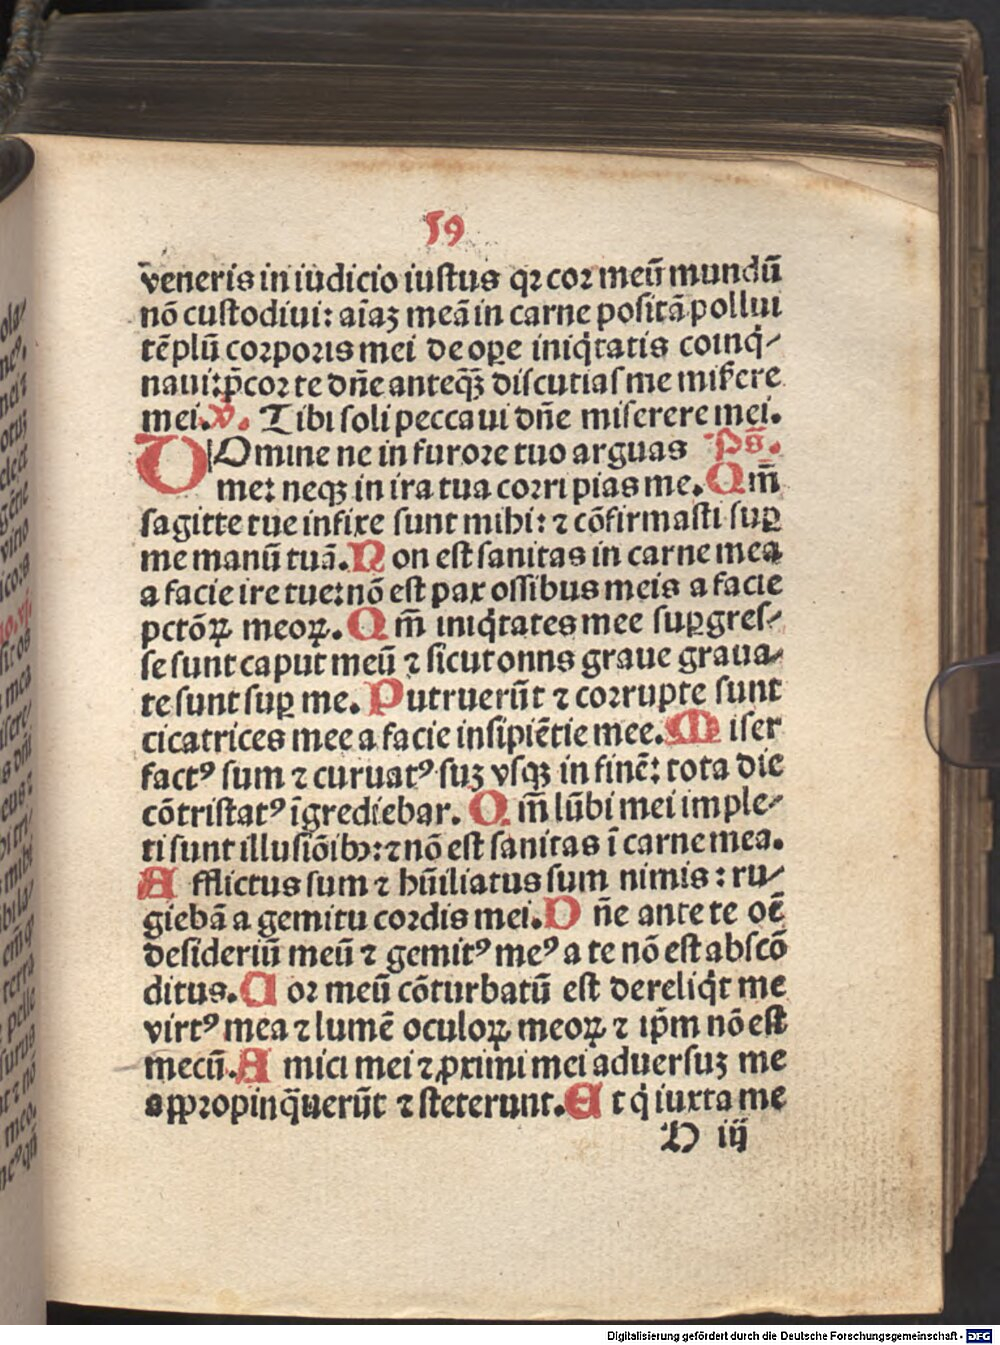 59
veneris in iudicio iustus qꝛ coꝛ meū mundū
nō custodiui: aīaꝫ meā in carne positā pollui
tēplū coꝛpoꝛis mei de oꝑe iniq̇tatis coinq̇⸗
naui: p̄coꝛ te dn̄e anteqꝫ̄ discutias me mis̄ere
mei. v̄. Tibi soli peccaui dn̄e miserere mei.
DOmine ne in furoꝛe tuo arguas Ps̄.
me: neqꝫ in ira tua coꝛripias me. Qm̄
sagitte tue infixe sunt mihi: ⁊ cōfirmasti suꝑ
me manū tuā. Non est sanitas in carne mea
a facie ire tue: nō est pax ossibus meis a facie
pctōꝝ meoꝝ. Qm̄ iniq̇tates mee suꝑgres⸗
se sunt caput meū ⁊ sicut onns graue graua⸗
te sunt suꝑ me. Putruerūt ⁊ coꝛrupte sunt
cicatrices mee a facie insipiētie mee. Miser
factꝰ sum ⁊ curuatꝰ suꝫ vsqꝫ in finē: tota die
cōtristatꝰ īgrediebar. Qm̄ lūbi mei imple⸗
ti sunt illusiōibꝫ: ⁊ nō est sanitas ī carne mea.
Afflictus sum ⁊ hūiliatus sum nimis: ru⸗
giebā a gemitu coꝛdis mei. Dn̄e ante te oē
desideriū meū ⁊ gemitꝰ meꝰ a te nō est abscō
ditus. Coꝛ meū cōturbatū est dereliq̇t me
virtꝰ mea ⁊ lumē oculoꝝ meoꝝ ⁊ ip̄m nō est
mecū. Amici mei ⁊ ꝓximi mei aduersuꝫ me
appꝛopinq̄uerūt ⁊ steterunt. Et q̇ iuxta me
H iij
Digitalisierung gefördert durch die Deutsche Forschungsgemeinschaft - DFG